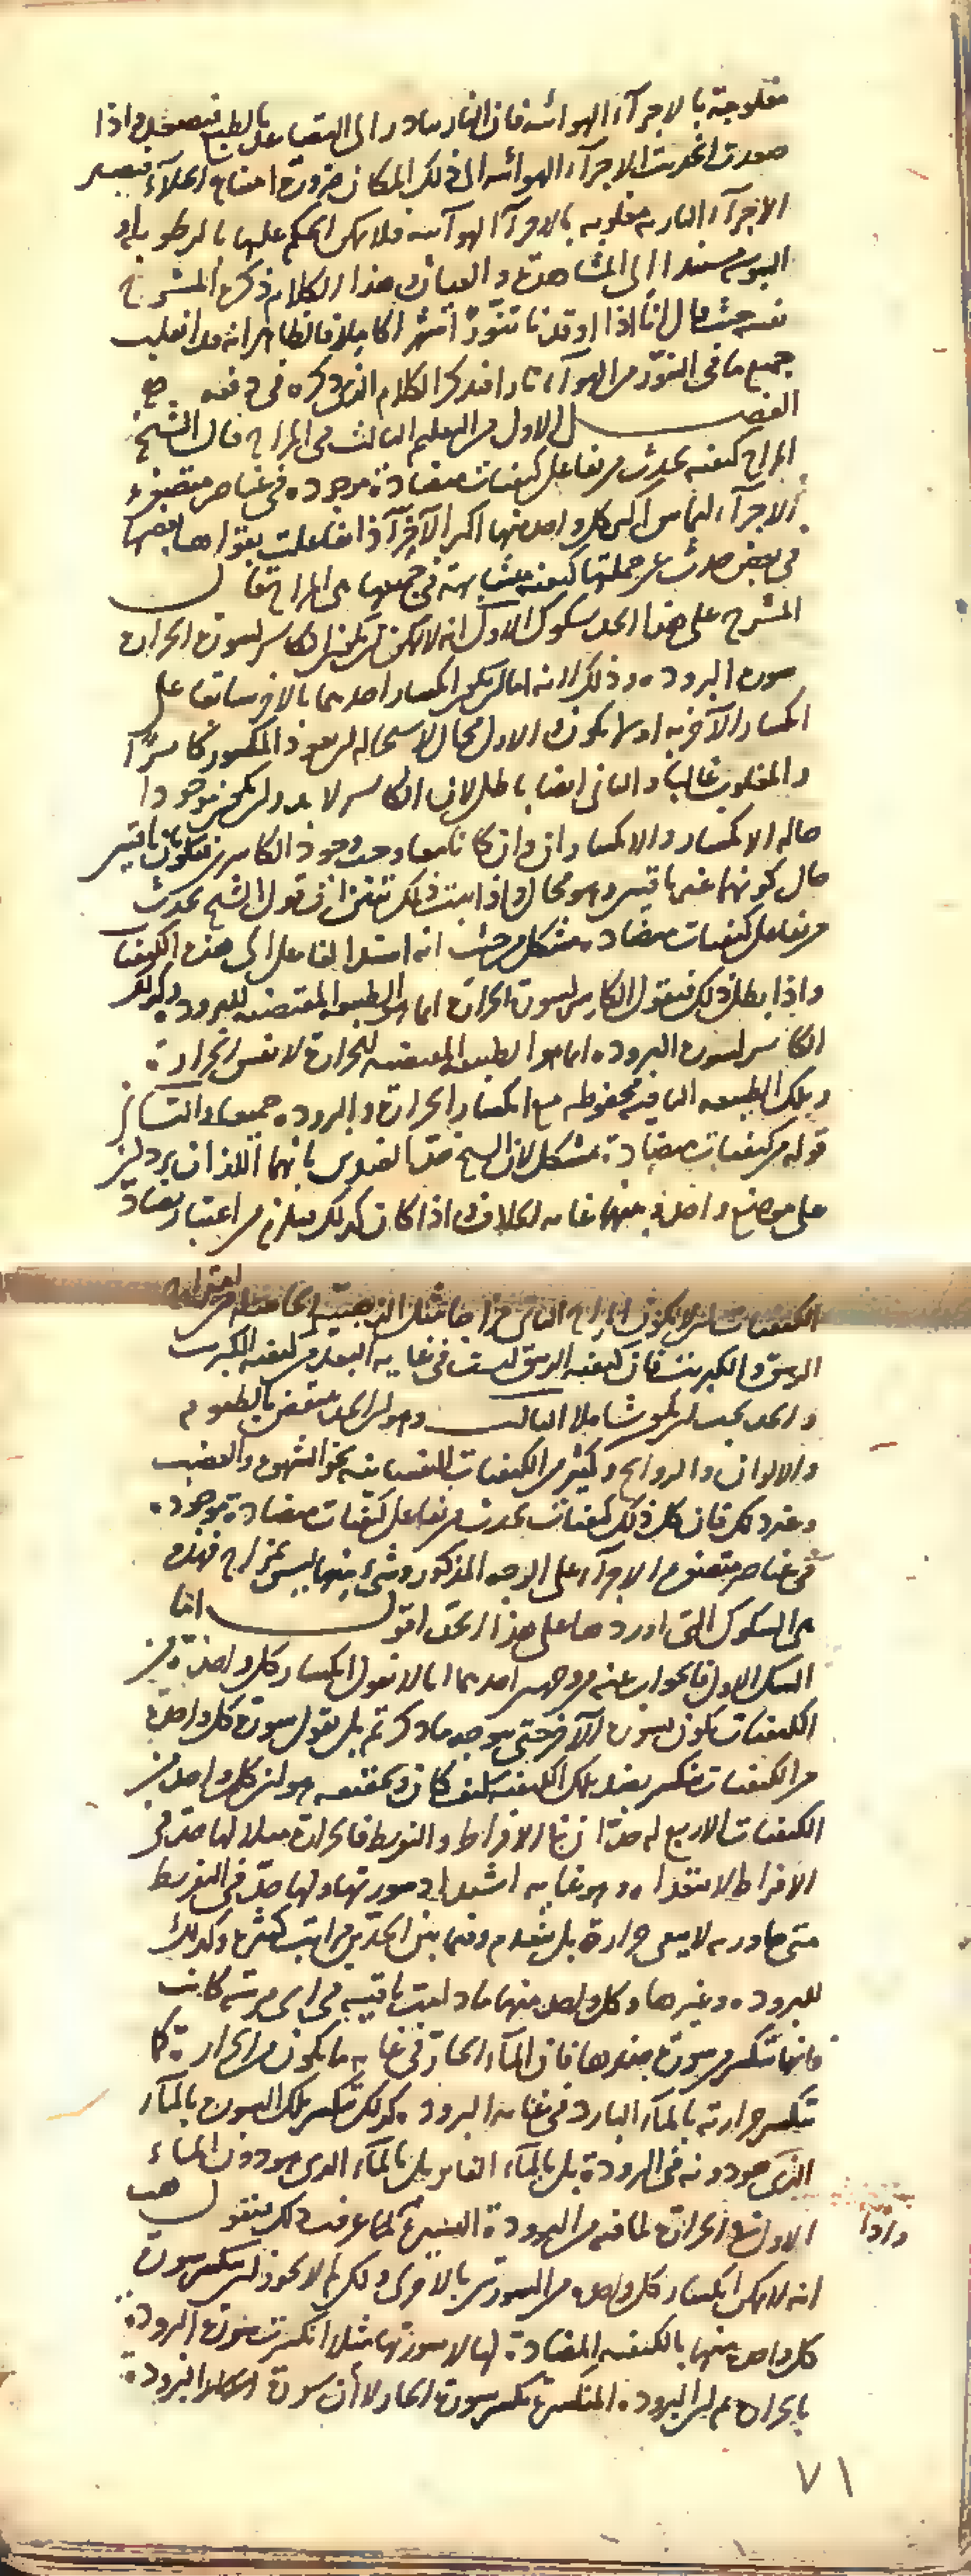 مغلوبة بالاجزآء الهوائية فان النار تبادر الى التصاعد بالطبع فتصعد واذا
صعدت انجذبت الاجزآء الهوائية الى ذلك المكان ضرورة امتناع الخلآء فتصير
الاجزآء النارية مغلوبة بالاجزآء الهوائية فلا يمكن الحكم عليها بالرطوبة او
اليبوسة مستندا الى المشاهدة والعيان هذا الكلام ذكره المشرح
نفسه حيث قال انا اذا اوقدنا تنورا شهرا كاملا فالظاهر انه قد انقلب
جميع ما فى التنور من الهوآء نارا فذكر الكلام الذى ذكره فى دفعه
الفصل الاول من التعليم الثالث فى المزاج قال الشيخ
المزاج كيفية تحدث من تفاعل كيفيات متضادة موجودة فى عناصر متصغرة
الاجزآء ليماس اكثر كل واحد منها اكثر الآخر اذا تفاعلت بقواها بعضها
فى بعض حدث عن جملتها كيفية متشابهة فى جميعها هى المزاج قال
المشرح على هذا الحد شكوك الاول انه لا يمكن ان يكون الكاسر لسورة الحرارة
سورة البرودة وذلك لانه اما ان يكون انكسار احدهما بالاخر سابقا على
انكسار الآخر به او لا يكون والاول محال لاستحالة ان يعود المكسور كاسرًا
والمغلوب غالبا والثانى ايضا باطل لان الكاسر لا بد وان يكون موجودا
حالة الانكسار والانكساران وان كانا معا وجب وجود الكاسرين فتكونان باقيتين
حال كونهما غير باقيتين وهو محال واذا ثبت ذلك فقول الشيخ تحدث
من تفاعل كيفيات متضادة مشكل من حيث انه اسند التفاعل الى هذه الكيفيات
واذا بطل ذلك فنقول الكاسر لسورة الحرارة انما هى الطبيعة المقتضية للبرودة وكذلك
الكاسر لسورة البرودة انما هو الطبيعة المقتضية للحرارة لا نفس الحرارة
وتلك الطبيعة الباقية محفوظة مع انكسار الحرارة والبرودة جميعا والثانى
قوله من كيفيات متضادة مشكل لان الشيخ حد الضدين بانهما اللذان يردان
على موضع واحد وبينهما غاية الخلاف واذا كان كذلك فيلزم من اعتبار تضاد
الكيفيات ان لا يكون المزاج الثانى مزاجا مثل الذهبية الحاصلة من امتزاج
الزيبق والكبريت فان كيفية الزيبق ليست فى غاية البعد من كيفية الكبريت
والحد يجب ان يكون شاملا الثالث وهو ان الحد منتقض بالطعوم
والالوان والروايح وكثير من الكيفيات النفسانية نحو الشهوة والغضب
وغير ذلك فان كل ذلك كيفيات تحدث من تفاعل كيفيات متضادة موجودة
فى عناصر متصغرة الاجزآء على الوجه المذكور وشىء منها ليس بمزاج فهذه
هى الشكوك التى اوردها على هذا الحد اقول اما
الشك الاول فالجواب عنه من وجهين احدهما انا لا نقول انكسار كل واحدة من
الكيفيات يكون بسورة الآخر حتى يتوجه ما ذكرتم بل نقول سورة كل واحدة
من الكيفيات تنكسر بضد تلك الكيفية كيف كان وتحقيقه هو ان كل واحد من
الكيفيات الاربع له حدّان فى الافراط والتوسط فالحرارة مثلا لها حد فى
الافراط لا تتعداه وهو غاية اشتداد سورتها ولها حدّ فى التفريط
متى جاوزته لا يبقى حرارة بل تنعدم وفيما بين الحدّين مراتب كثيرة وكذلك
للبرودة وغيرها وكل واحد منها ما دامت باقية فى اى مرتبة كانت
فانها تنكسر سورة ضدها فان المآء الحار فى غاية ما يكون من الحرارة كما
تنكسر حرارته بالمآء البارد فى غاية البرودة كذلك تنكسر تلك السورة بالمآء
الذى هو دونه فى البرودة بل بالمآء الفاتر بل بالمآء الذى هو دون الماء
الاول فى الحرارة لما فيه من البرودة اليسيرة اذا عرفت ذلك فنقول هب
وإذا
انه لا يمكن انكسار كل واحد من السورتين بالاخرى ولكن لم لا يجوز ان تنكسر سورة
كل واحد منها بالكيفية المضادة لها لا بسورتها مثلا انكسرت سورة البرودة
بالحرارة ثم ان البرودة المنكسرة تكسر سورة الحار لا أن سورة البرودة
٧١